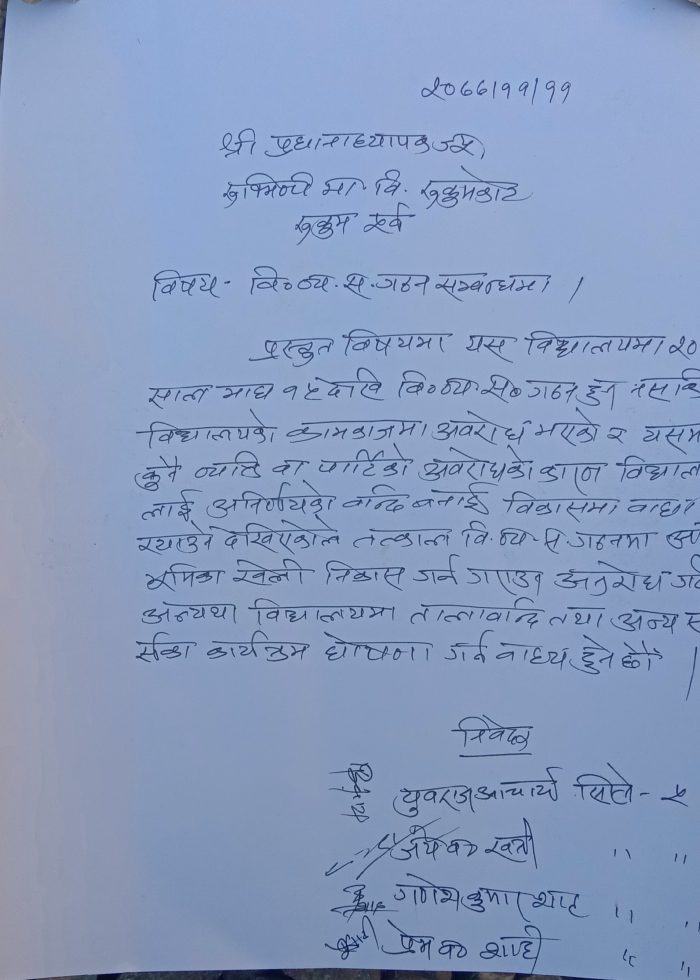 २०७७।११।११
श्री प्रधानाध्यापकज्यू,
रुक्मिणी मा. वि. रुकुमकोट
रुकुम पूर्व
विषय - वि०व्य.स.गठन सम्बन्धमा ।
प्रस्तुत विषयमा यस विद्यालयमा २०
साल माघ देखि वि०व्य.स० गठन हुन नसकि
विद्यालयको कामकाजमा अवरोध भएको र यसमा
कुनै व्यक्ति वा पार्टिको अवरोधको कारण विद्यालय
लाई अनिर्णयको बन्दि बनाई विकासमा वाधा
रयाउने देखिएकोले तत्काल वि.व्य.स.गठनमा
भुमिका खेली निकास गर्न गराउन अनुरोध गर्द
अन्यथा विद्यालयमा तालावन्दि तथा अन्य स
र्सका कार्यक्रम घोषणा गर्न वाध्य हुने छौं ।
निवेदक
युवराज आचार्य सिले - ५
खत्री " "
गणेश कुमार शाह " "
प्रेम व० शाही " "